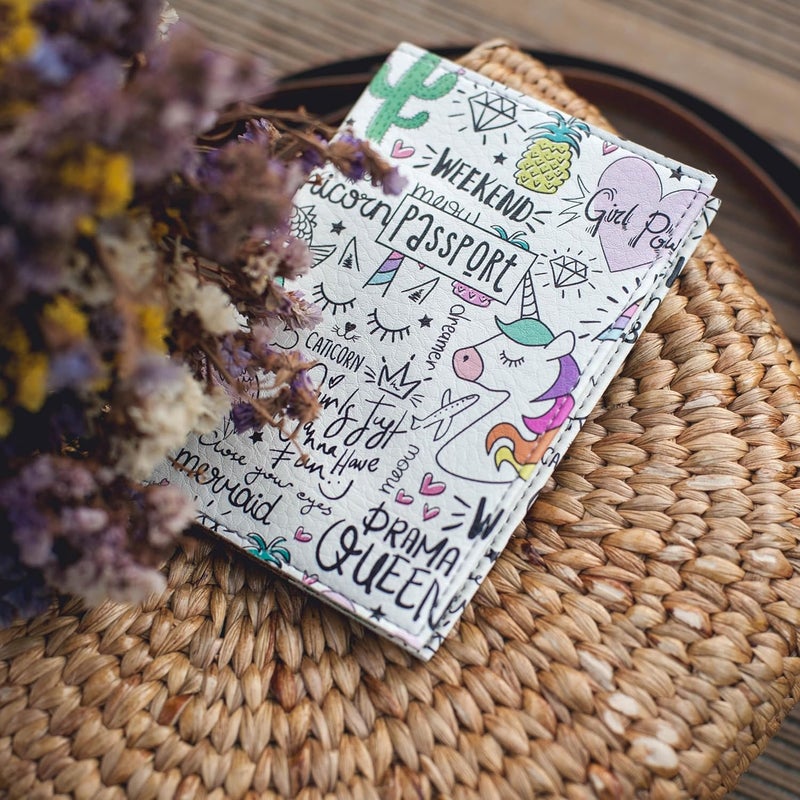 WEEKEND
Girl Pow
meow
Passport
CATICORN
dreamer
Girls Just
Wanna Have
Fun
meow
Close your eyes
mermaid
DRAMA
QUEEN
CA
W